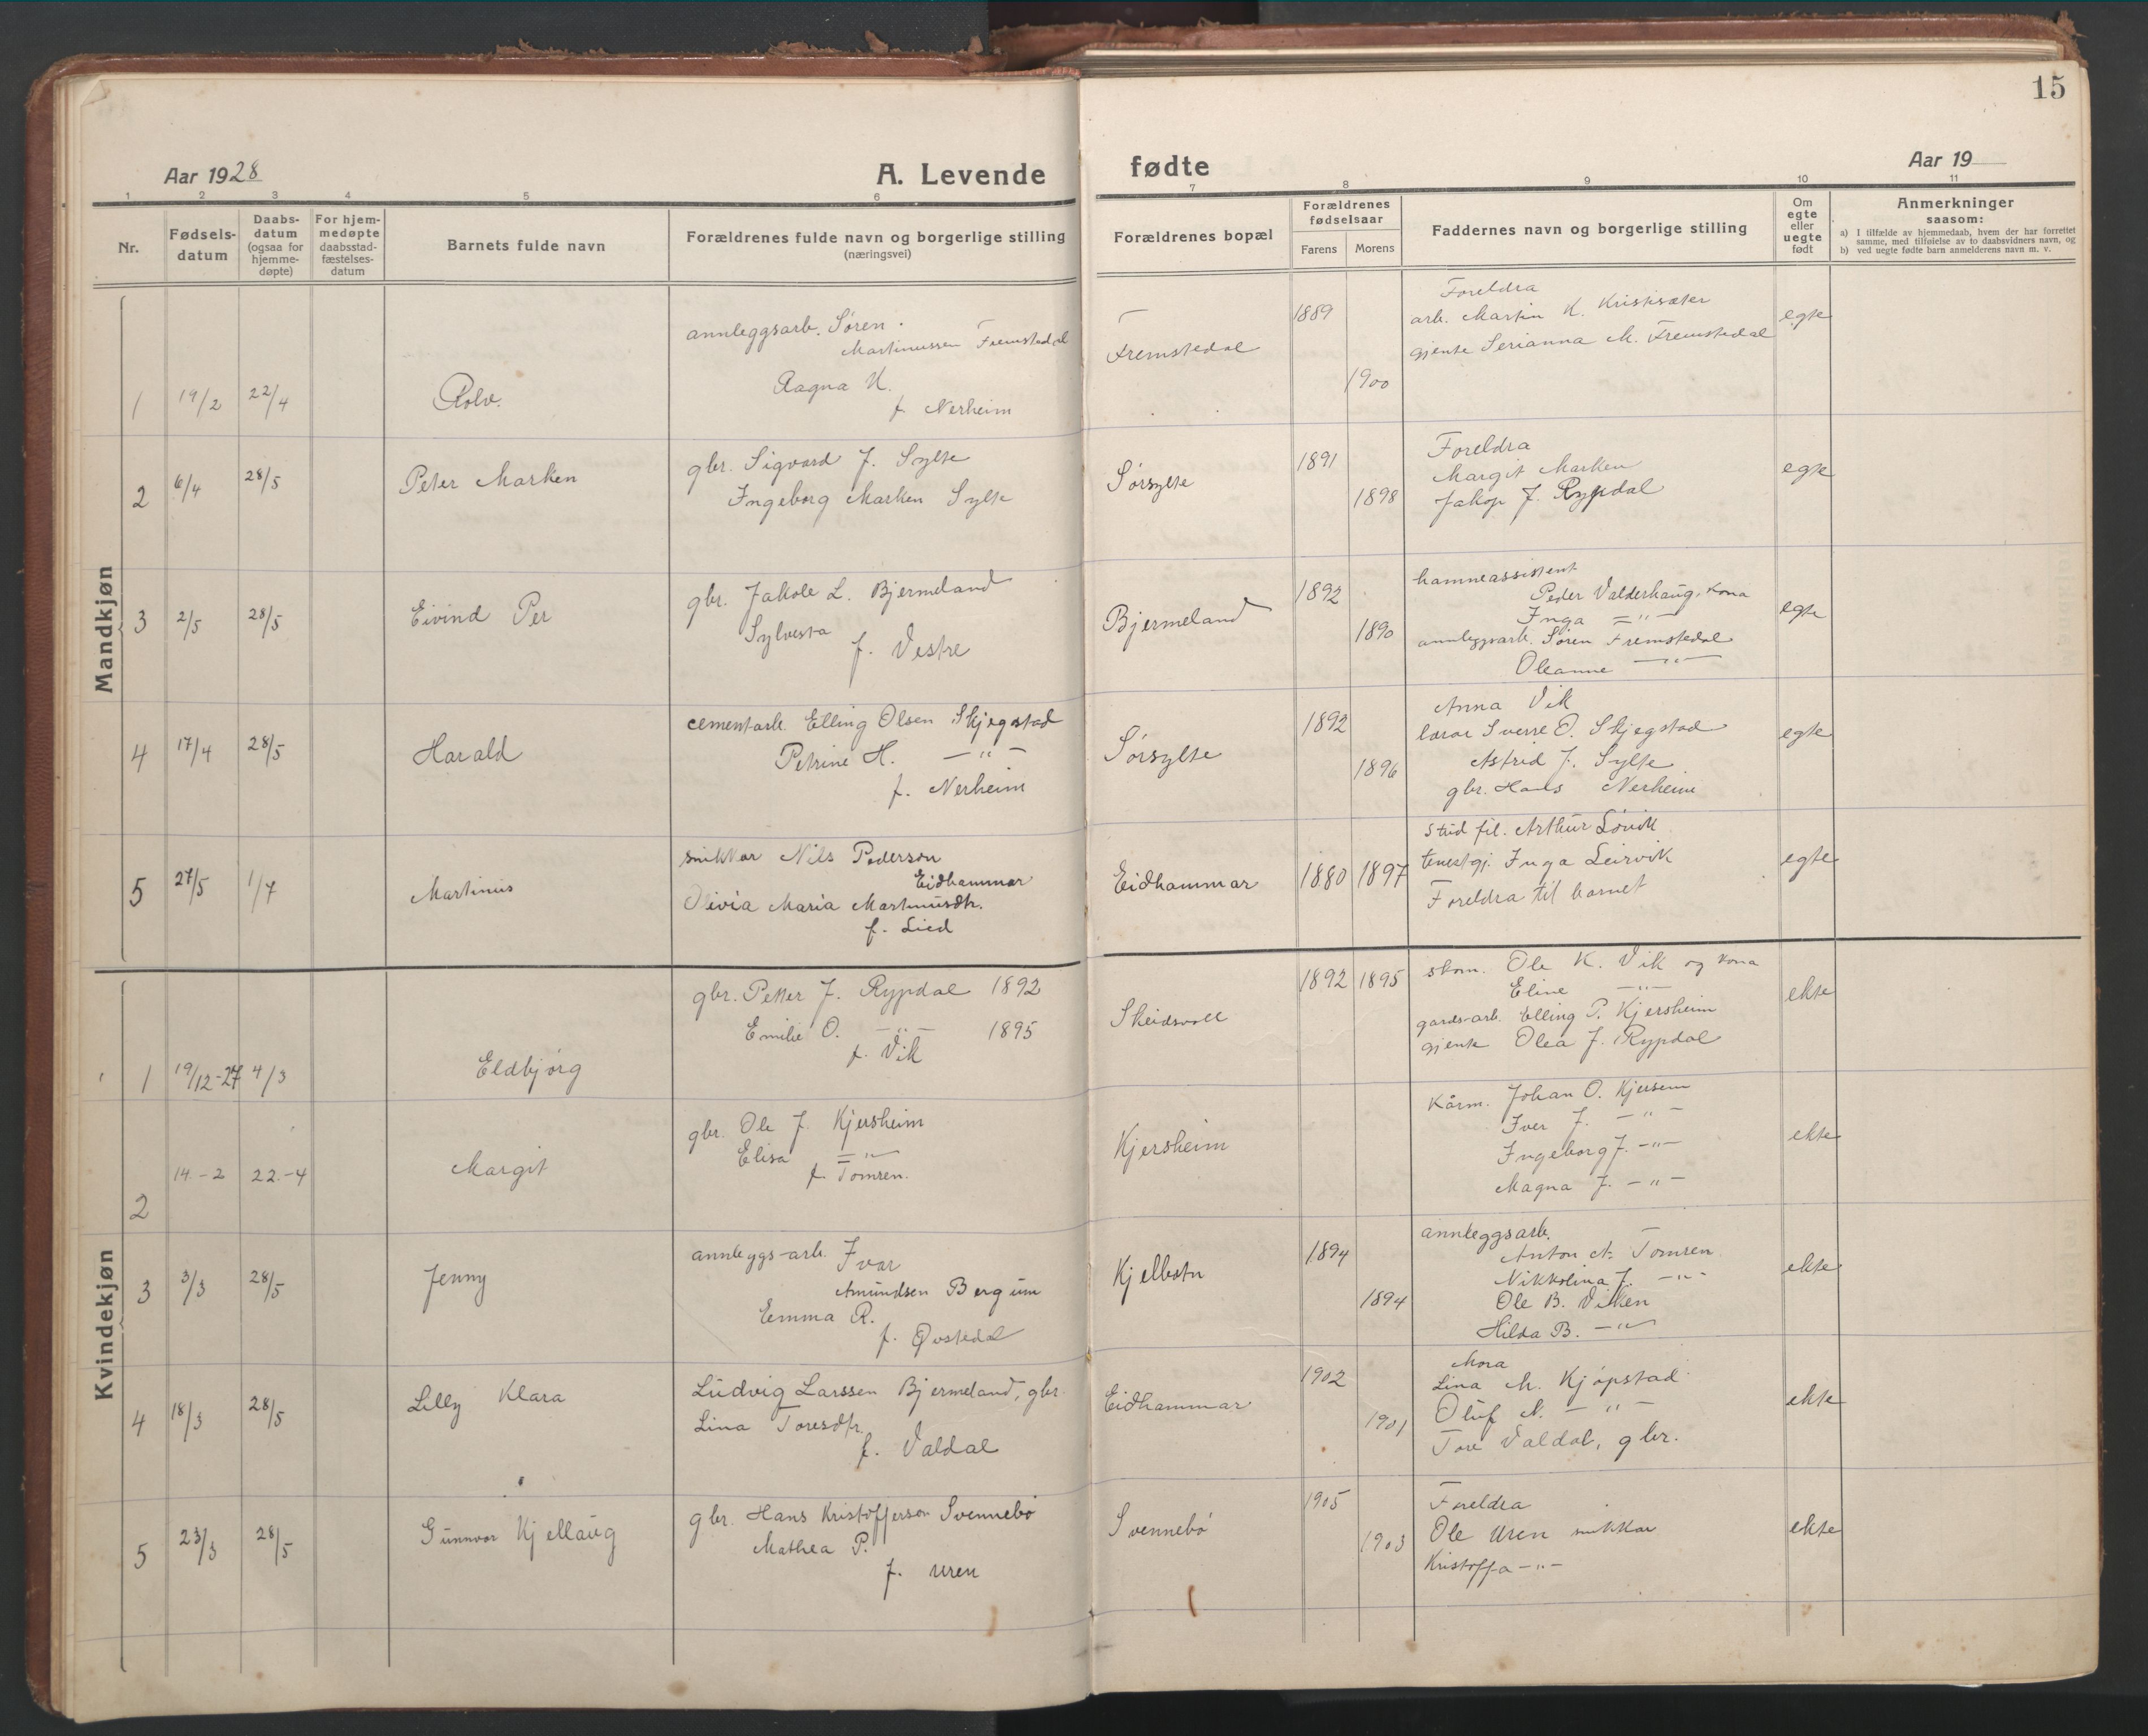 15
Aar 1928
A. Levende
fødte
Aar 19
1 2 3 4 5 6 7 8 9 10 11
Nr.
Fødsels-
datum
Daabs-
datum
(ogsaa for
hjemme-
døpte)
For hjem-
medøpte
daabsstad-
fæstelses-
datum
Barnets fulde navn
Forældrenes fulde navn og borgerlige stilling
(næringsvei)
Forældrenes bopæl
Forældrenes
fødselsaar
Farens Morens
Faddernes navn og borgerlige stilling
Om
egte
eller
uegte
født
Anmerkninger
saasom:
a) I tilfælde av hjemmedaab, hvem der har forrettet
samme, med tilføielse av to daabsvidners navn, og
b) ved uegte fødte barn anmelderens navn m. v.
Mandkjøn
1 19/2 22/4 Rolv.
annleggsarb. Søren
Martinussen Fremstedal
Ragna K.
f. Nerheim
Fremstedal
1889
1900
Foreldra
arb. Martin K. Kristisæter
gjente Serianna M. Fremstedal
egte
2 6/4 28/5 Peter Marken
gbr. Sigvard J. Sylte
Ingeborg Marken Sylte
Sørsylte
1891
1898
Foreldra
Margit Marken
Jakop J. Rypdal
egte
3 2/5 28/5 Eivind Per
gbr. Jakole L. Bjermeland
Sylvesta
f. Vestre
Bjermeland
1892
1890
hamneassistent
Peder Valderhaug, kona
Inga — " —
annleggsarb. Søren Fremstedal
Oleanne — " —
egte
4 17/4 28/5 Harald
cementarb. Elling Olsen Skjegstad
Petrine H. — " —
f. Nerheim
Sørsylte
1892
1896
Anna Vik
lærar Sverre O. Skjegstad
Astrid J. Sylte
gbr. Hans Nerheim
egte
5 27/5 1/7 Martinus
snikkar Nils Pederson
Eidhammar
Olivia Maria Martinusdtr.
f. Lied
Eidhammar
1880 1897
Stud fil. Arthur Løvik
tenestgj. Inga Leirvik
Foreldra til barnet
egte
Kvindekjøn
1 19/12-27 4/3 Eldbjørg
gbr. Petter J. Rypdal 1892
Emilie O. — " — 1895
f. Vik
Skeidsvoll
1892 1895
skom. Ole K. Vik og kona
Eline — " —
gards-arb. Elling P. Kjersheim
gjente Olea J. Rypdal
ekte
2 14.-2 22.-4 Margit
gbr. Ole J. Kjersheim
Elisa — " —
f. Tomren.
Kjersheim
Kårm. Johan O. Kjersem
Iver J. — " —
Ingeborg J. — " —
Magna J. — " —
ekte
3 3/3 28/5 Jenny
annleggs-arb. Ivar
Amundsen Bergum
Emma R.
f. Øvstedal
Kjelbotn
1894
1894
annleggsarb.
Anton A. Tomren
Nikkolina J. — " —
Ole B. Vikken
Hilda B. — " —
ekte
4 18/3 28/5 Lilly Klara
Ludvig Larssen Bjermeland, gbr.
Lina Toresdtr.
f. Valdal
Eidhammar
1902
1901
Mora
Lina M. Kjøpstad
Oluf N. — " —
Tore Valdal, gbr.
ekte
5 23/3 28/5 Gunnvor Kjellaug
gbr. Hans Kristofferson Svennebø
Mathea P.
f. Uren
Svennebø
1905
1903
Foreldra
Ole Uren snikkar
Kristoffa — " —
ekte